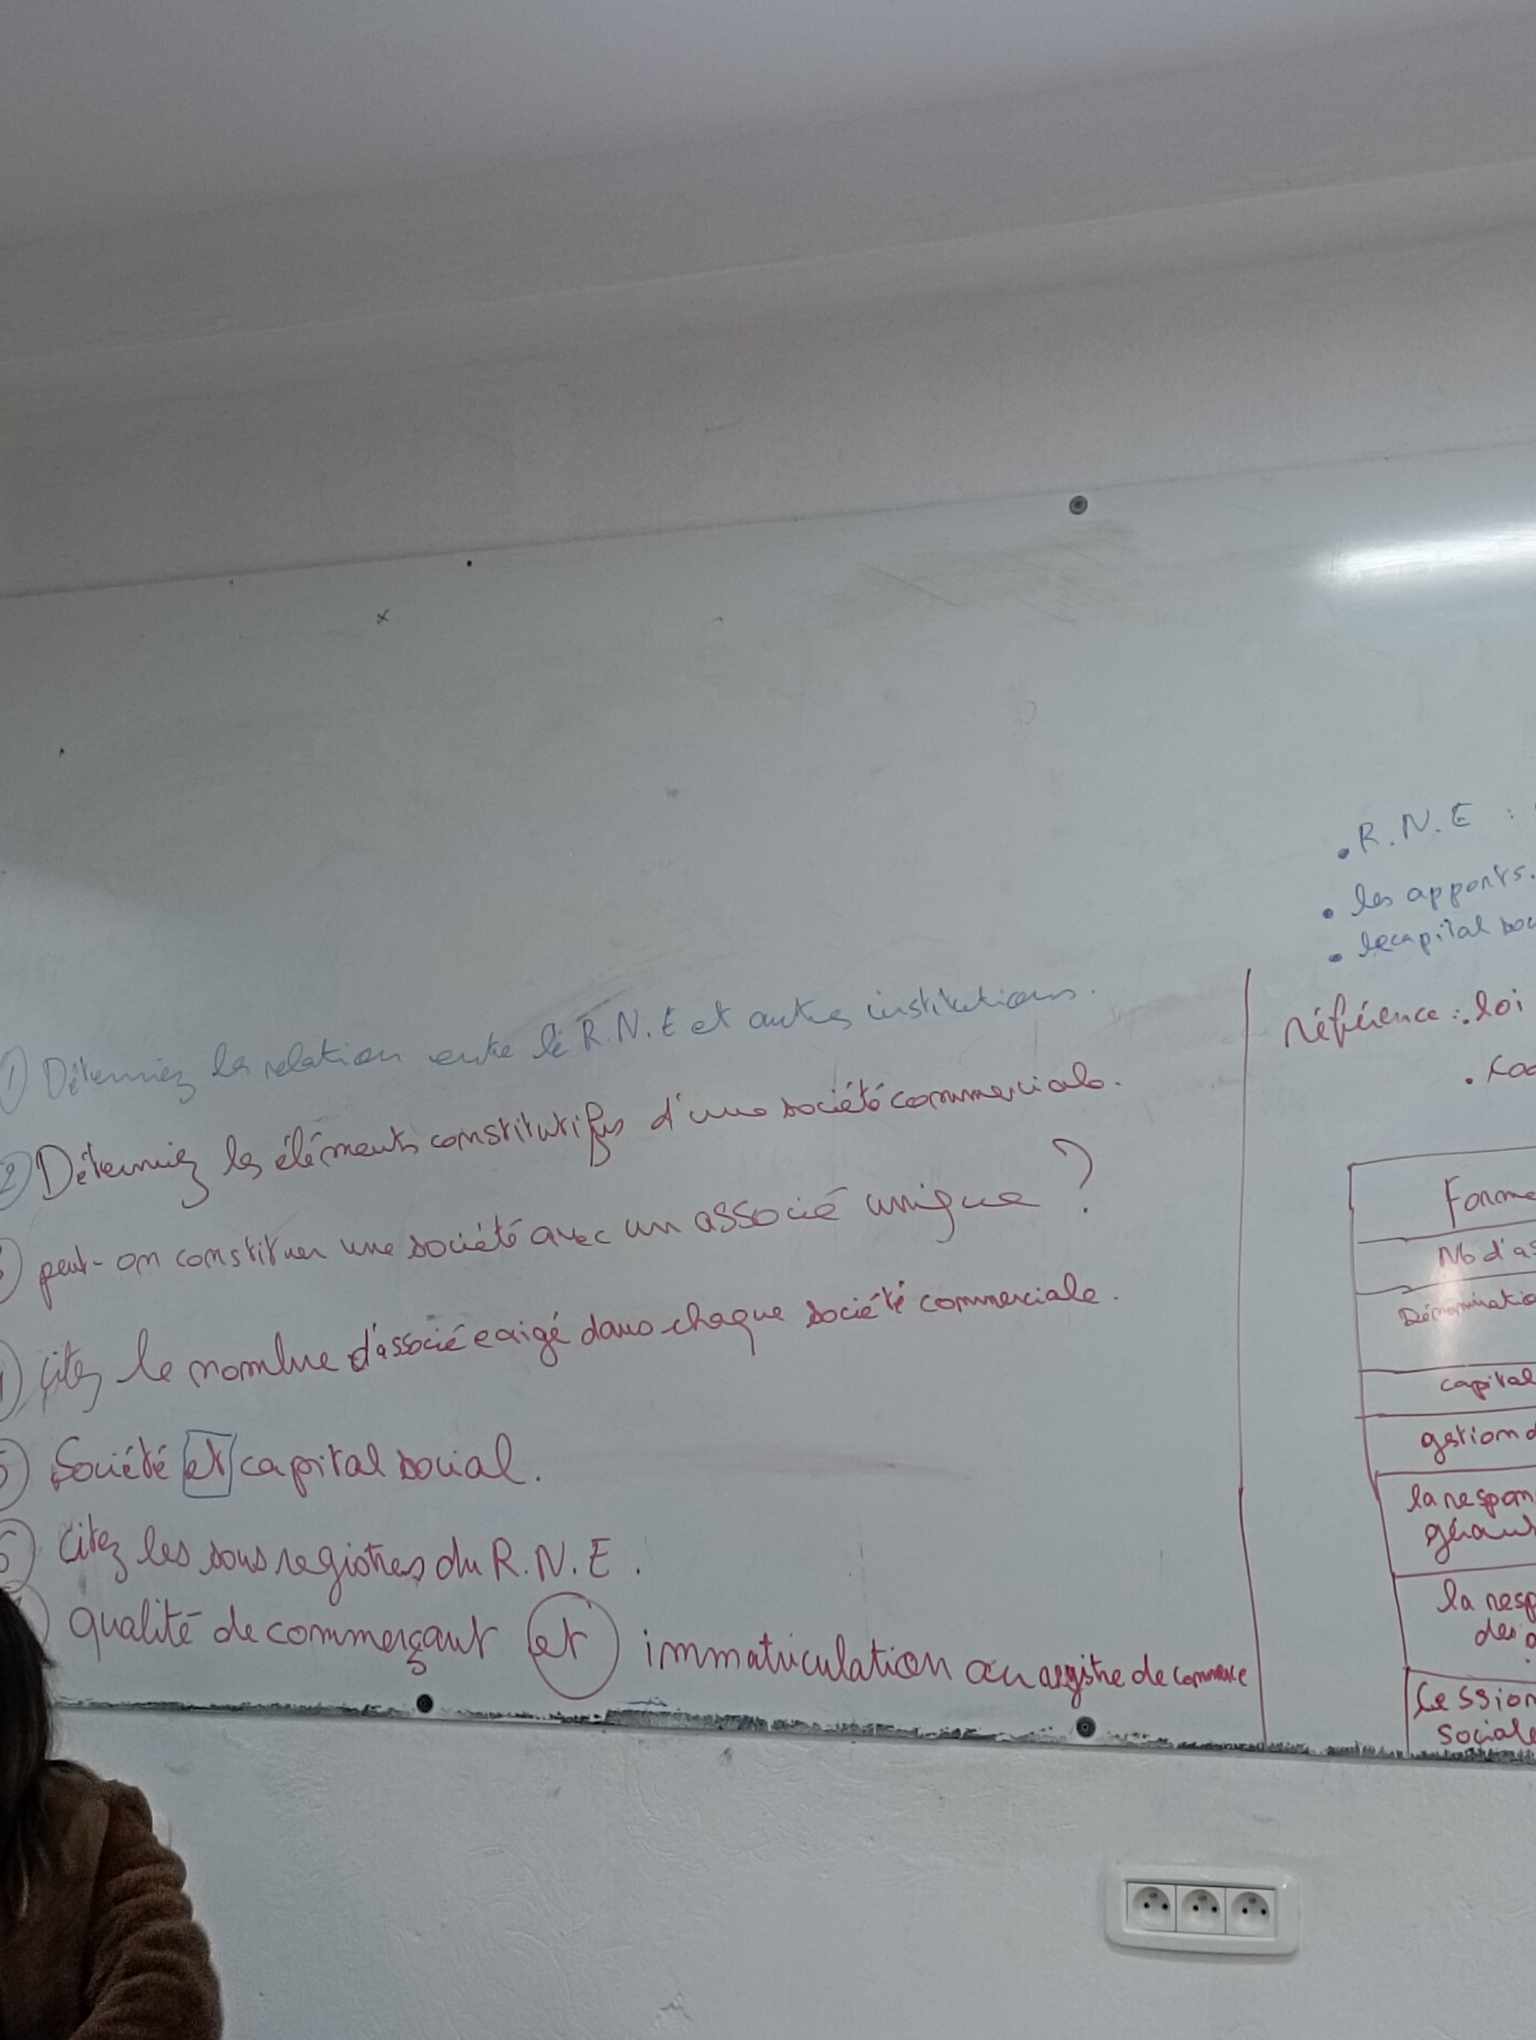 ① Déterminez la relation entre le R.N.E et autres institutions.
② Déterminez les éléments constitutifs d'une société commerciale.
peut-on constituer une société avec un associé unique ?
citez le nombre d'associé exigé dans chaque société commerciale.
Société et capital social.
citez les sous registres du R.N.E.
qualité de commerçant et immatriculation au registre de commerce
• R.N.E :
• les apports.
• le capital
référence : loi
Forme
Nb d'as
Dénominatio
capital
gestion d
la respon
gérant
la resp
des
Cession
sociale